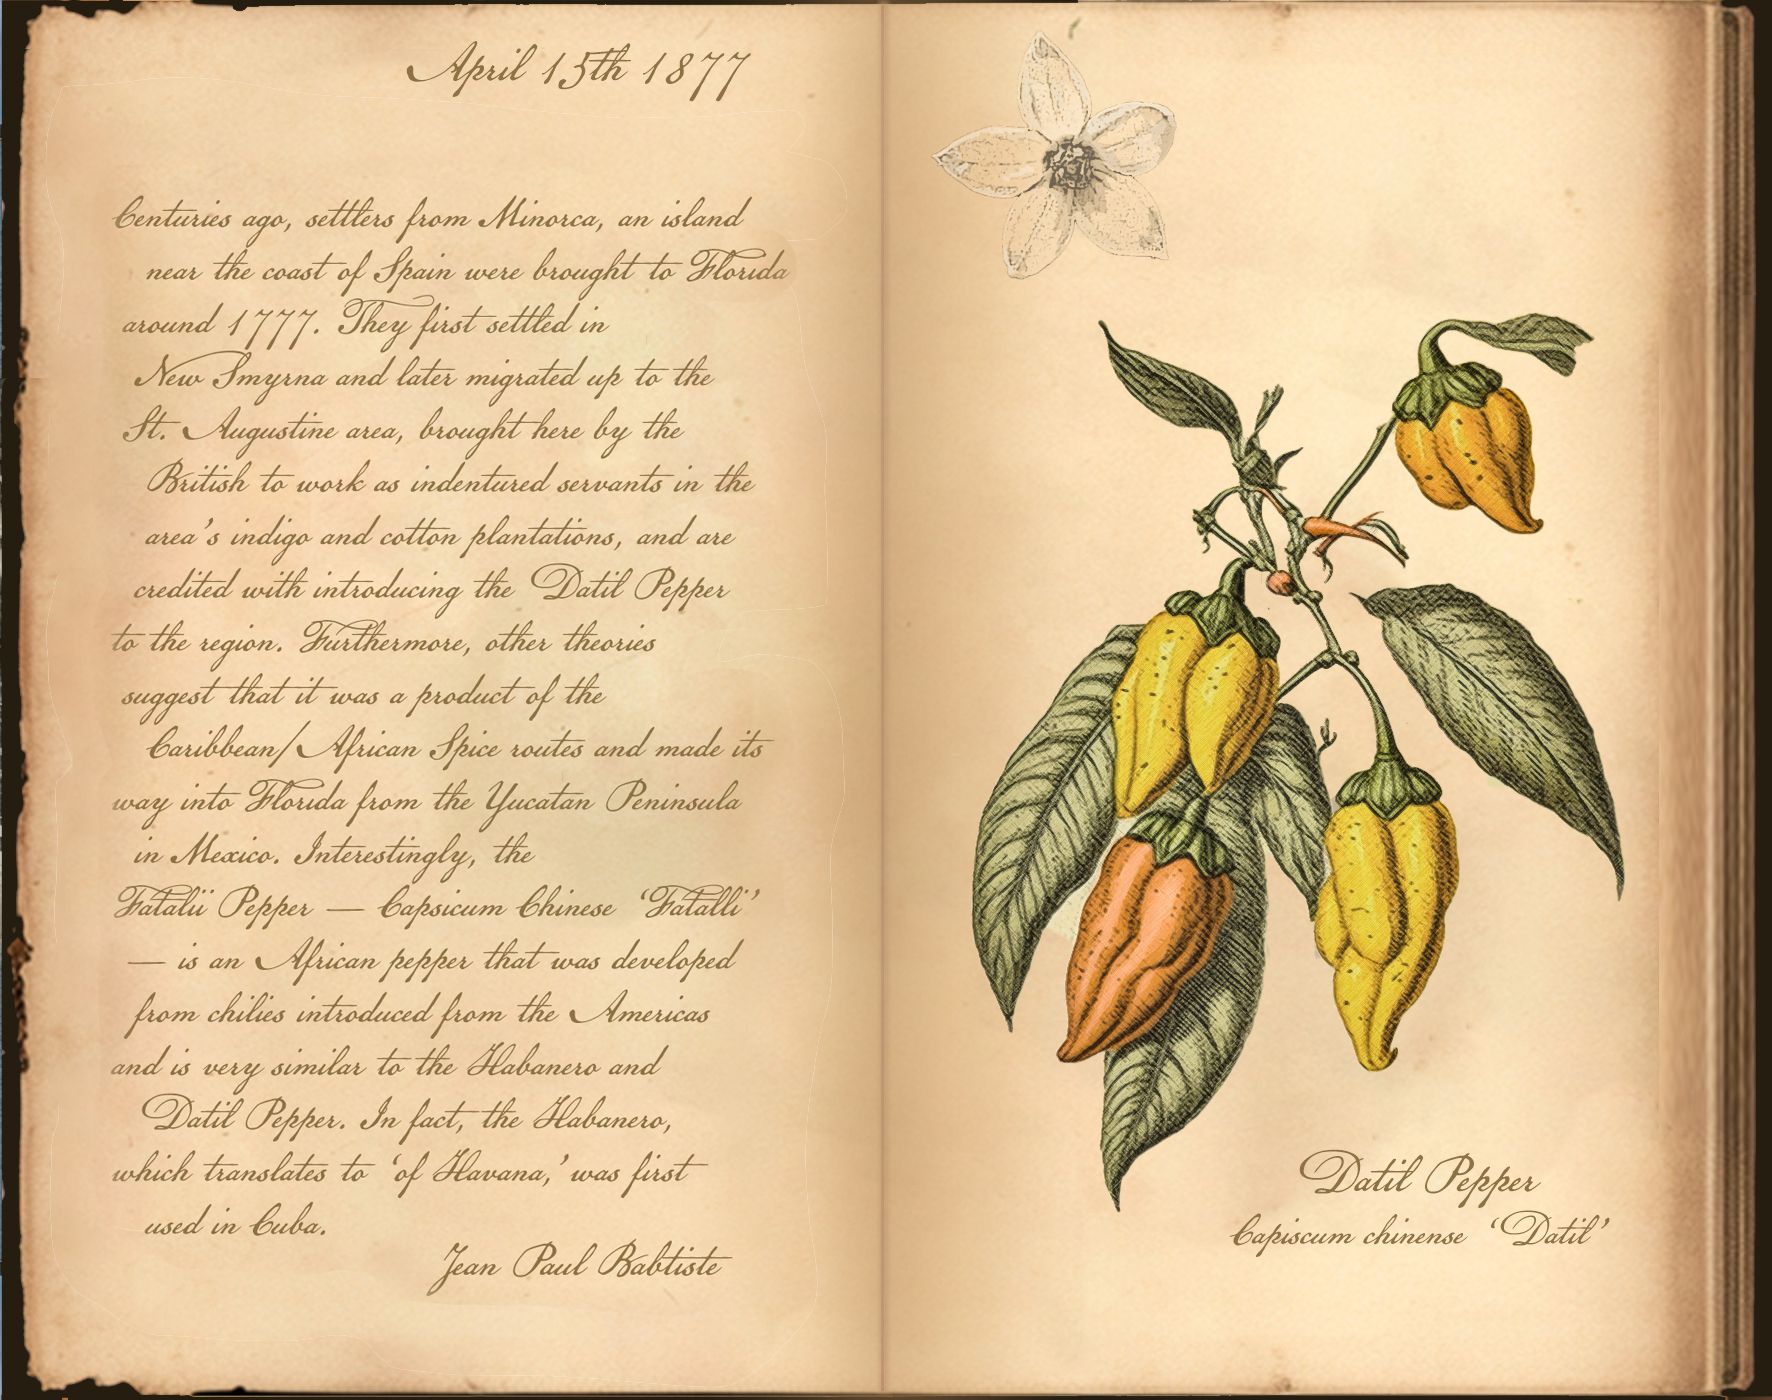 April 15th 1877
Centuries ago, settlers from Minorca, an island
near the coast of Spain were brought to Florida
around 1777. They first settled in
New Smyrna and later migrated up to the
St. Augustine area, brought here by the
British to work as indentured servants in the
area's indigo and cotton plantations, and are
credited with introducing the Datil Pepper
to the region. Furthermore, other theories
suggest that it was a product of the
Caribbean/African Spice routes and made its
way into Florida from the Yucatan Peninsula
in Mexico. Interestingly, the
Fatalii Pepper — Capsicum Chinese ‘Fatalli’
— is an African pepper that was developed
from chilies introduced from the Americas
and is very similar to the Habanero and
Datil Pepper. In fact, the Habanero,
which translates to ‘of Havana,’ was first
used in Cuba.
Jean Paul Babtiste
Datil Pepper
Capiscum chinense ‘Datil’